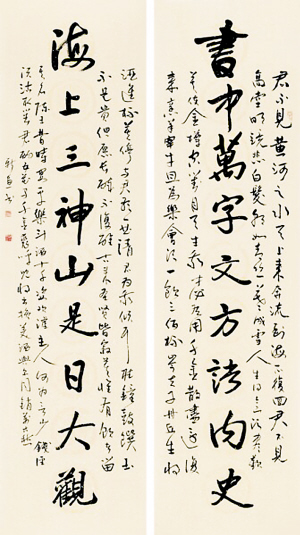 君不見黃河之水天上來奔流到海不復回君不見
高堂明鏡悲白髮朝如青絲暮成雪人生得意須盡歡
書中萬字文方內史
莫使金樽空對月天生我材必有用千金散盡還復
來烹羊宰牛且為樂會須一飲三百杯岑夫子丹丘生將
酒進杯莫停與君歌一曲請君為我傾耳聽鐘鼓饌玉
不足貴但願長醉不復醒古來聖賢皆寂寞惟有飲者留
海上三神山是日大觀
其名陳王昔時宴平樂斗酒十千恣歡謔主人何為言少錢徑
須沽取對君酌五花馬千金裘呼兒將出換美酒與爾同銷萬古愁